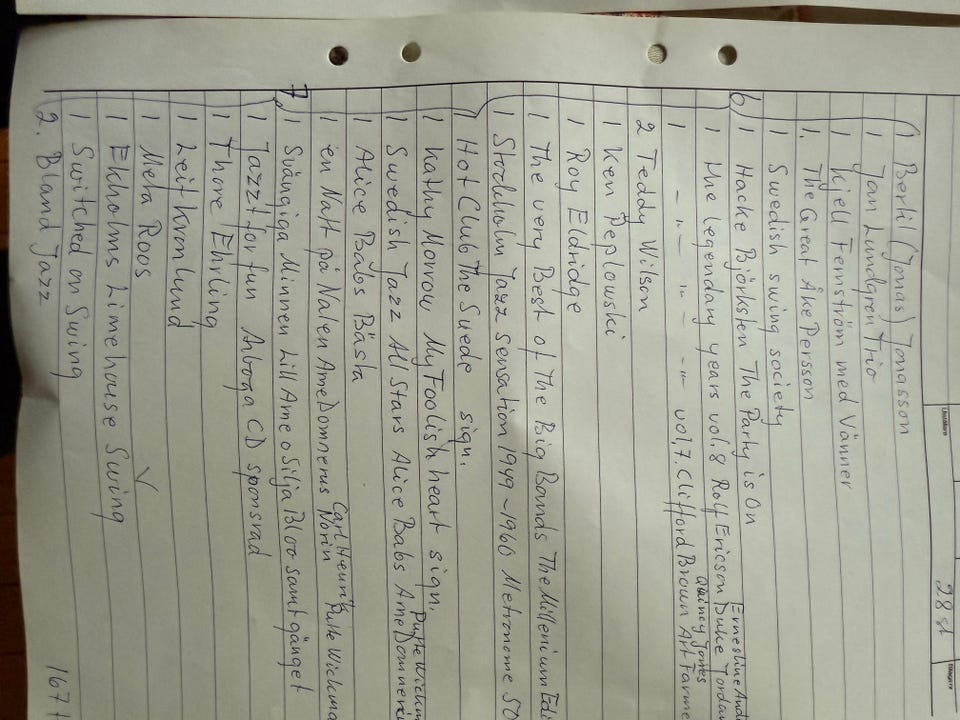 28 st
1 Bertil (Jonas) Jonasson
1 Jan Lundgren Trio
1 Kjell Fernström med Vänner
1. The Great Åke Persson
1 Swedish swing society
6 1 Hacke Björksten The Party is On
Ernestine And
1 The legendary years vol. 8 Rolf Ericson Duke Jordan
Quincy Jones
1 - " - " - " vol 7. Clifford Brown Art Farme
2 Teddy Wilson
1 Ken Peplowski
1 Roy Eldridge
1 The very Best of The Big Bands The Millenium Edi
1 Stockholm Jazz Sensation 1949-1960 Metronome SO
1 Hot Club The Suede sign.
1 Kathy Morrow My Foolish heart sign.
Putte Wickm
1 Swedish Jazz All Stars Alice Babs Arne Domneru
1 Alice Babs Bästa
Carl Henrik
1 en Natt på Nalen Arne Domnerus Norin Putte Wickma
7. 1 Svängiga Minnen Lill Arne o Silja Bloo samt gänget
1 Jazzt for fun Arboga CD sponsrad
1 Thore Ehrling
1 Leif Kronlund
1 Meta Roos ✓
1 Ekholms Limehouse Swing
1 Switched on Swing
2. Bland Jazz
167+